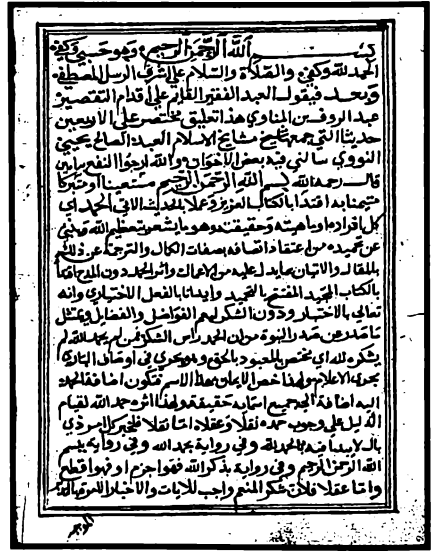 بسم الله الرحمن الرحيم وهو حسبي وكفى
الحمد لله وكفى والصلاة والسلام على اشرف الرسل المصطفى
وبعد فيقول العبد الفقير القائم على اقدام التقصير
عبد الروف بن المناوي هذا تعليق مختصر على الاربعين
حديثا التي جمعها شيخ مشايخ الاسلام العبد الصالح يحيى
النووي سالني فيه بعض الاخوان والله ارجوا النفع به امين
قال رحمه الله بسم الله الرحمن الرحيم مستعينا او متبركا
متيمنا به اقتدا بالكتاب العزيز وعملا بالحديث الاتي الحمد اي
كل افراده او ماهيته وحقيقته وهو ما يشعر بتعظيم الله
عن تحميده من اعتقاد اتصافه بصفات الكمال والترجمة عن ذلك
بالمقال والاتيان بما يدل عليه من الاعمال واثر الحمد دون المدح
بالكتاب المجيد المفتتح بالتحميد وايذانا بالفعل الاختياري وانه
تعالى بالاختيار ودون الشكر ليعم الفواضل والفضايل
ما صدر عن صدر النبوة من ان الحمد راس الشكر فمن لم يحمد الله لم
يشكره لله اي يختص بالمعبود بالحق وهو يجري في اوصاف الباري
مجرى الاعلام ولهذا خص الايمان بهذا الاسم فتكون اضافة الحمد
اليه اضافة الحمد لجميع اسمايه حقيقة ولهذا اثره حمد الله لقيام
الدليل على وجوب حمده نقلا وعقلا اما نقلا فلخبر كل امر ذي
بال لا يبدا فيه بالحمد لله وفي رواية بحمد الله وفي رواية ببسم
الله الرحمن الرحيم وفي رواية بذكر الله فهو اجزم او فهو اقطع
واما عقلا فلان شكر المنعم واجب للايات والاخبار